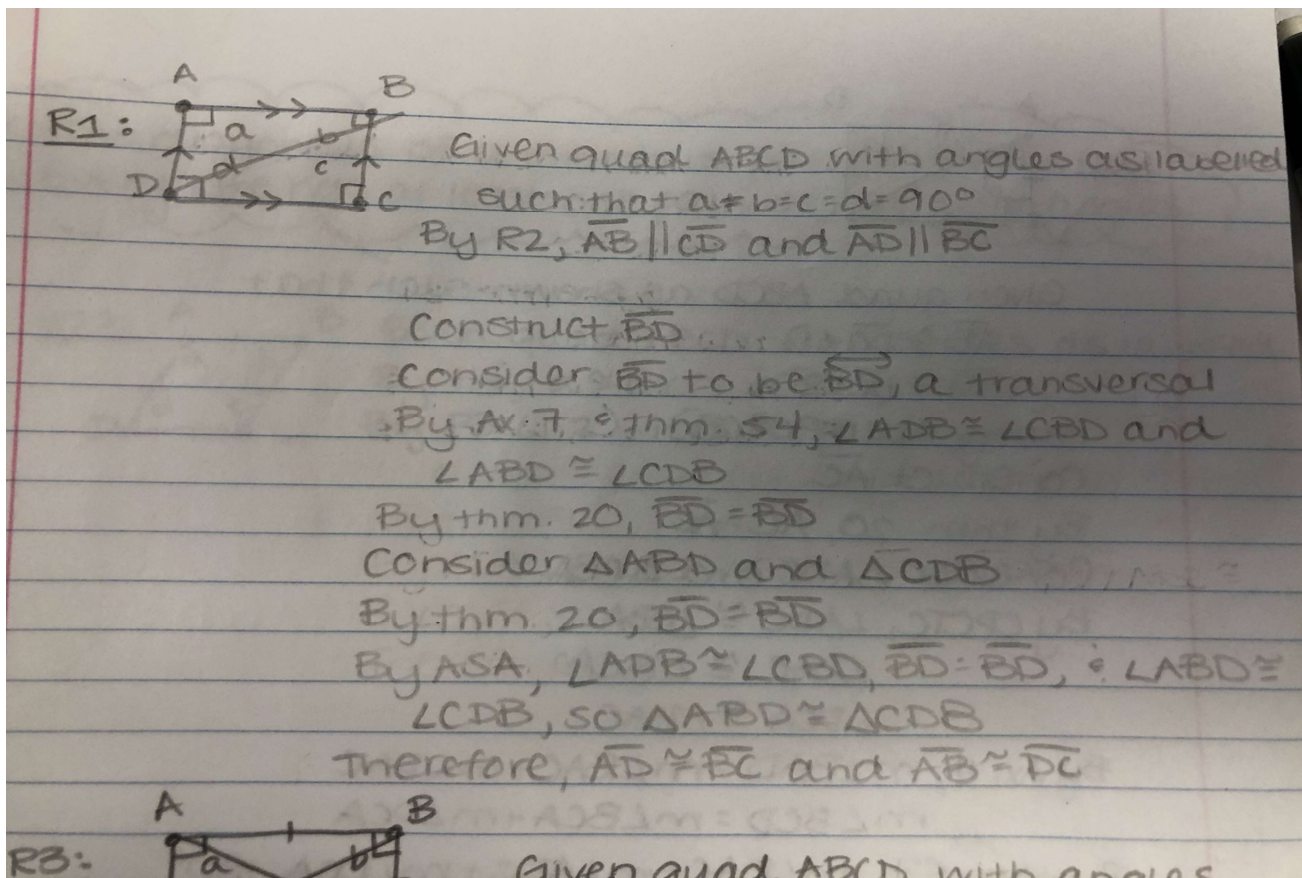 A B
R1:
a b
d c
D C
Given quad ABCD with angles as labeled
such that a = b = c = d = 90°
By R2, A̅B̅ || C̅D̅ and A̅D̅ || B̅C̅
Construct B̅D̅
Consider B̅D̅ to be BD, a transversal
By Ax. 7 & thm. 54, ∠ADB ≅ ∠CBD and
∠ABD ≅ ∠CDB
By thm. 20, B̅D̅ = B̅D̅
Consider △ABD and △CDB
By thm 20, B̅D̅ = B̅D̅
By ASA, ∠ADB ≅ ∠CBD, B̅D̅ = B̅D̅, & ∠ABD ≅
∠CDB, so △ABD ≅ △CDB
Therefore, A̅D̅ ≅ B̅C̅ and A̅B̅ ≅ D̅C̅
A B
R3:
a b
Given quad ABCD with angles